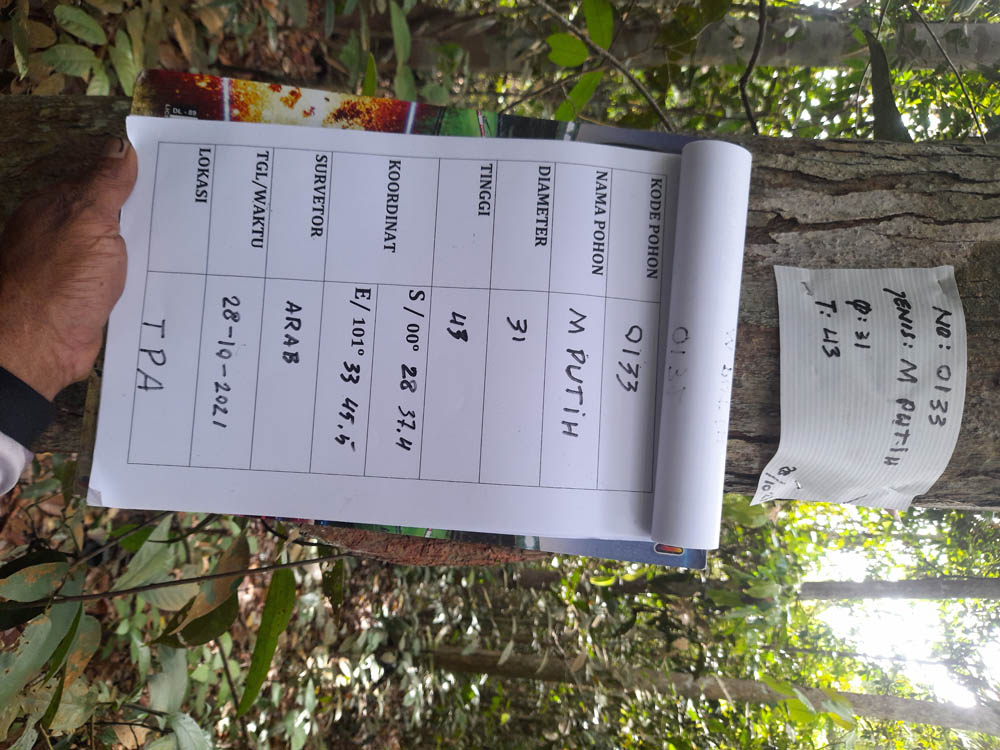 NO: 0133
JENIS: M PUTIH
Ø: 31
T: 43
28/10
0131
KODE POHON 0133
NAMA POHON M PUTIH
DIAMETER 31
TINGGI 43
KOORDINAT S / 00° 28 37.4
E/ 101° 33 45.5
SURVETOR ARAB
TGL/WAKTU 28-10-2021
LOKASI TPA